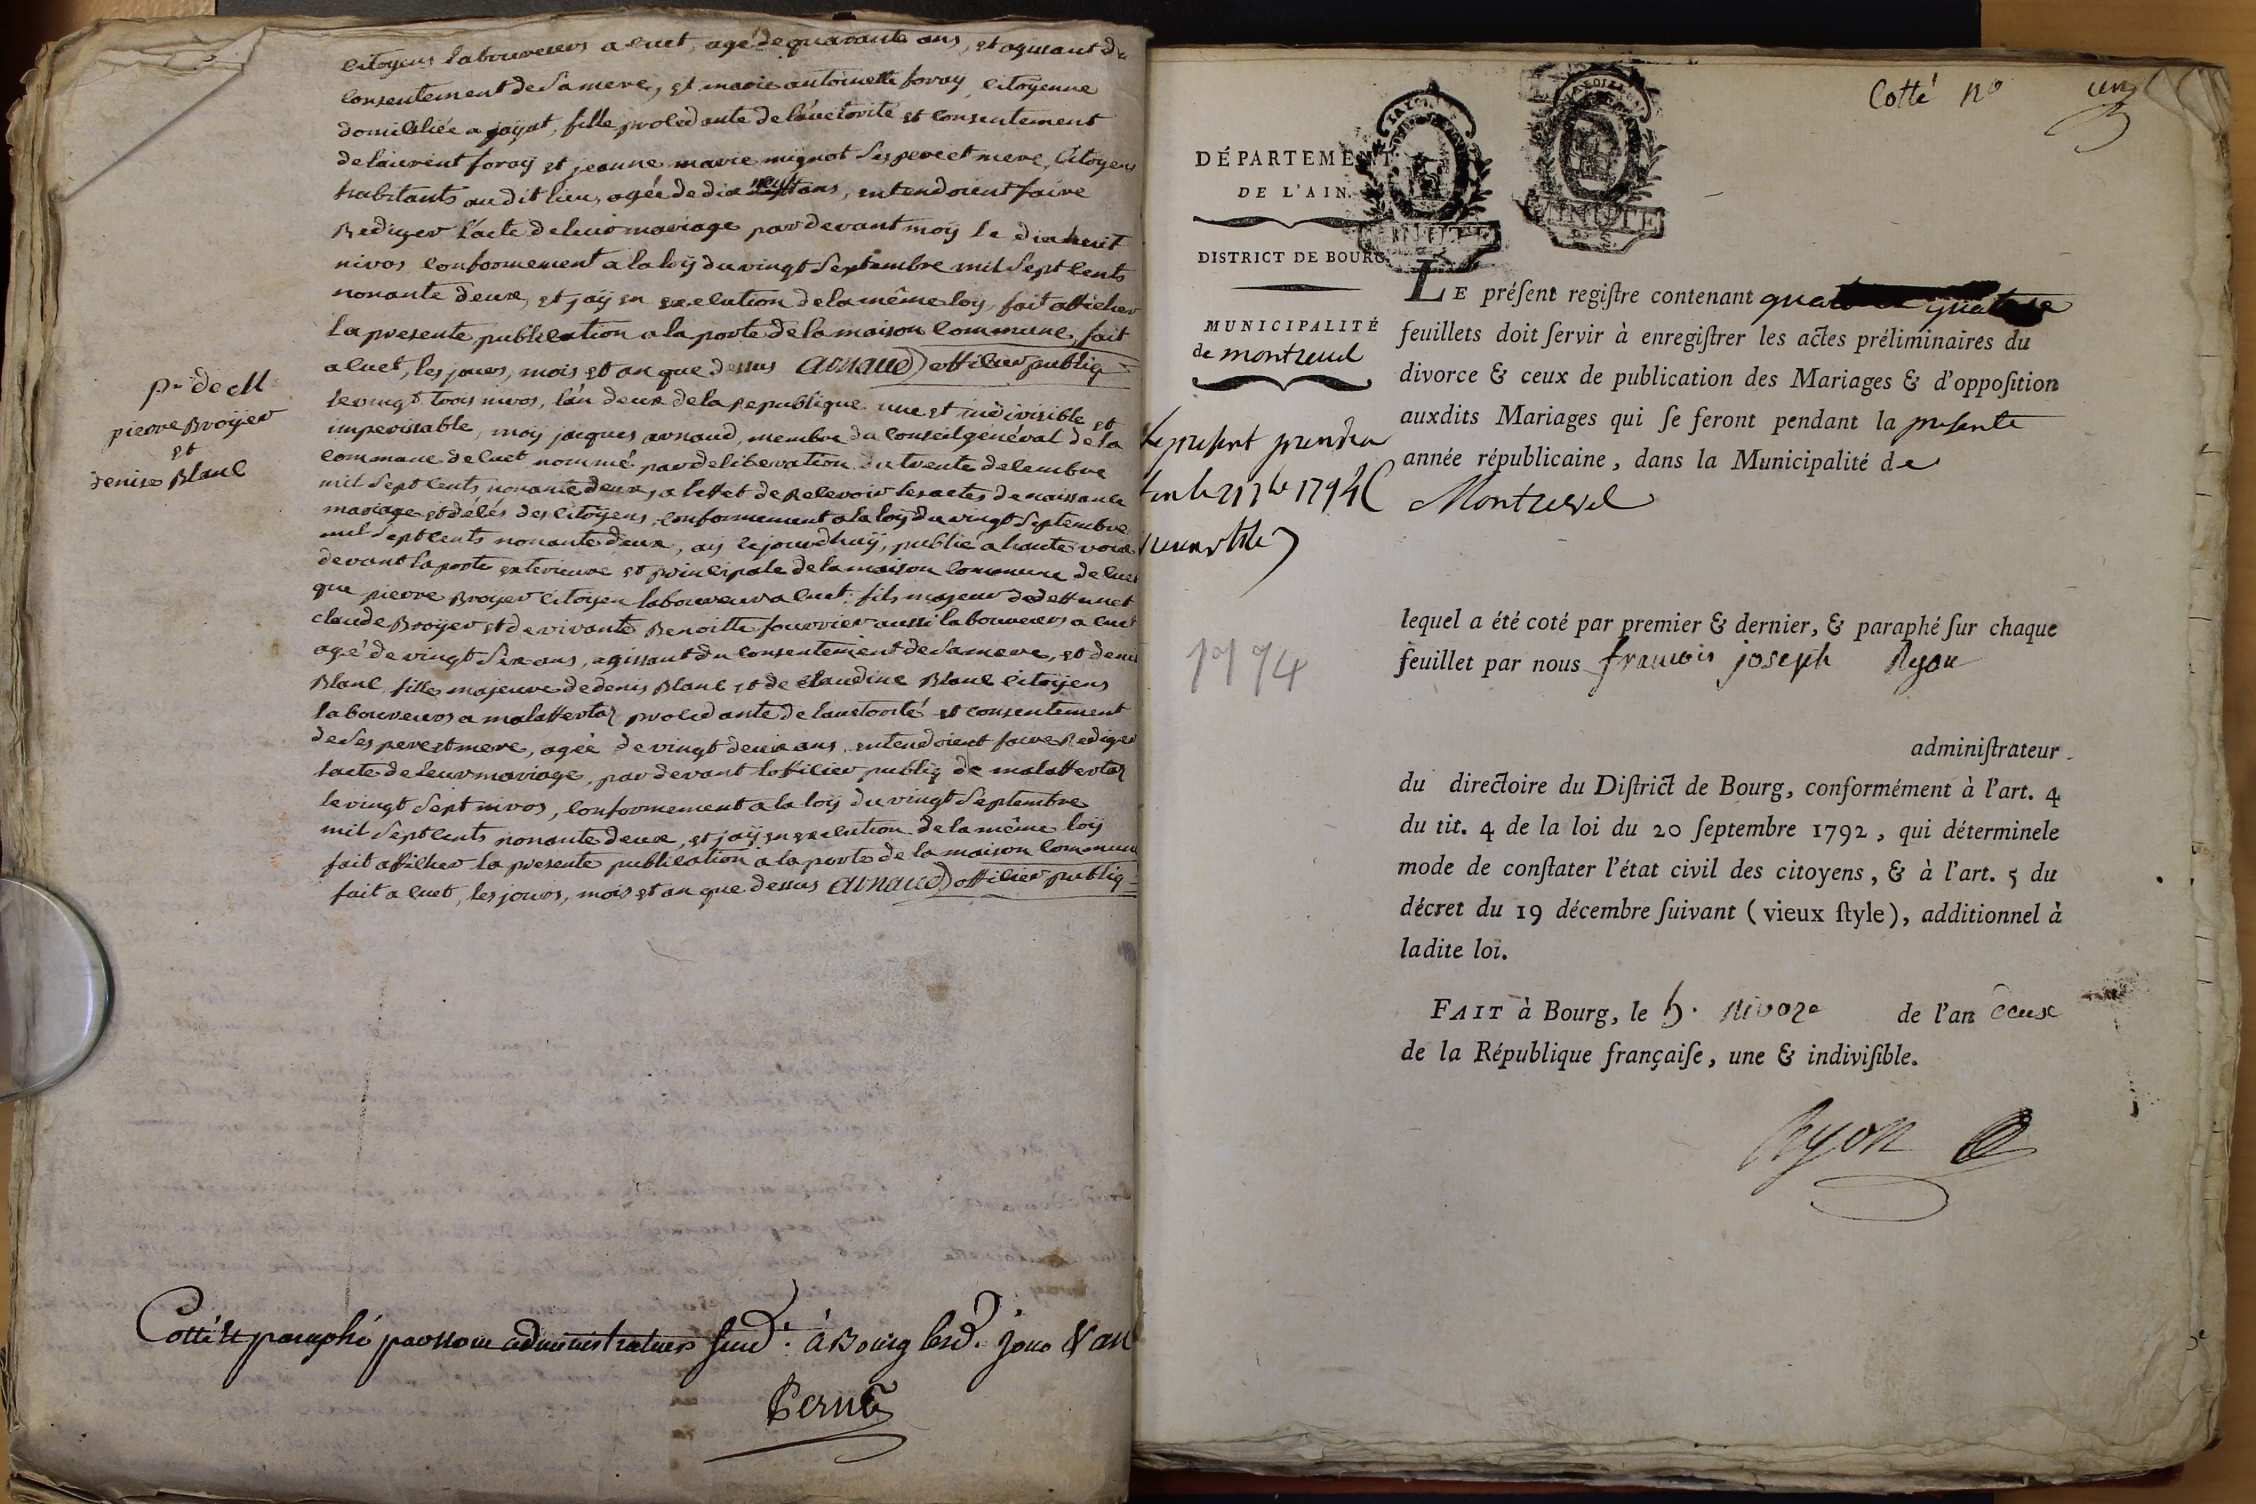 citoyens laboureurs a cuet, agé de quarante ans, et agissant du
consentement de sa mere, et marie antoinette foray, citoyenne
domiciliée a jayat, fille procedante de l'auctorité et consentement
de laurent foray et jeanne marie mignot ses pere et mere, citoyens
habitants au dit lieu, agée de dix neuf ans, entendoient faire
Rediger l'acte de leur mariage par devant moy le dix huit
nivos conformement a la loÿ du vingt Septembre mil Sept cents
nonante deux, et j'aÿ en execution de la même loy, fait afficher
la presente publication a la porte de la maison commune, fait
a cuet, les jours, mois et an que dessus arnaud officier publiq
p.on de M
pierre Broyer
et
denise Blanc
le vingt trois nivos, l'an deux de la Republique une et indivisible et
imperissable, moÿ jacques arnaud, membre du Conseil général de la
commune de cuet nommé par deliberation du trente decembre
mil Sept cents nonante deux, a l'effet de Recevoir les actes de naissance
mariage et décés des citoÿens, conformement a la loÿ du vingt Septembre
mil Sept cents nonante deux, aÿ cejourdhuÿ, publié a haute voix
devant la porte exterieure et principale de la maison commune de cuet
que pierre Broyer citoyen laboureur a cuet, fils majeur de deffunct
claude Broyer et de vivante Benoitte fourrier aussi laboureurs a cuet
agé de vingt Six ans, agissant du consentement de Sa mere, et denise
Blanc, fille majeure de denis Blanc et de claudine Blanc citoÿens
laboureurs a malaffertaz procedante de l'auctorité et consentement
de Ses pere et mere, agée de vingt deux ans, entendoient faire Rediger
l'acte de leur mariage, par devant l'officier publiq de malaffertaz
le vingt Sept nivos, conformement a la loÿ du vingt Septembre
mil Sept cents nonante deux, et j'aÿ en execution de la même loÿ
fait afficher la presente publication a la porte de la maison commune
fait a cuet, les jours, mois et an que dessus arnaud officier publiq
Cotté et paraphé par nous administrateur Susd.t à Bourg lesd. jour & an
Perna
Cotté no un
DÉPARTEMENT
DE L'AIN.
DISTRICT DE BOURG.
MUNICIPALITÉ
de montreuil
MINUTE
Le present prendra
1794
LE préſent regiſtre contenant quatorze
feuillets doit ſervir à enregiſtrer les actes préliminaires du
divorce & ceux de publication des Mariages & d'oppoſition
auxdits Mariages qui ſe feront pendant la presente
année républicaine, dans la Municipalité de
Montrevel
lequel a été coté par premier & dernier, & paraphé ſur chaque
feuillet par nous francois joseph Ryon
adminiſtrateur
du directoire du Diſtrict de Bourg, conformément à l'art. 4
du tit. 4 de la loi du 20 ſeptembre 1792, qui déterminele
mode de conſtater l'état civil des citoyens, & à l'art. 5 du
décret du 19 décembre ſuivant (vieux ſtyle), additionnel à
ladite loi.
FAIT à Bourg, le 5. nivoze de l'an deux
de la République françaiſe, une & indiviſible.
Ryon